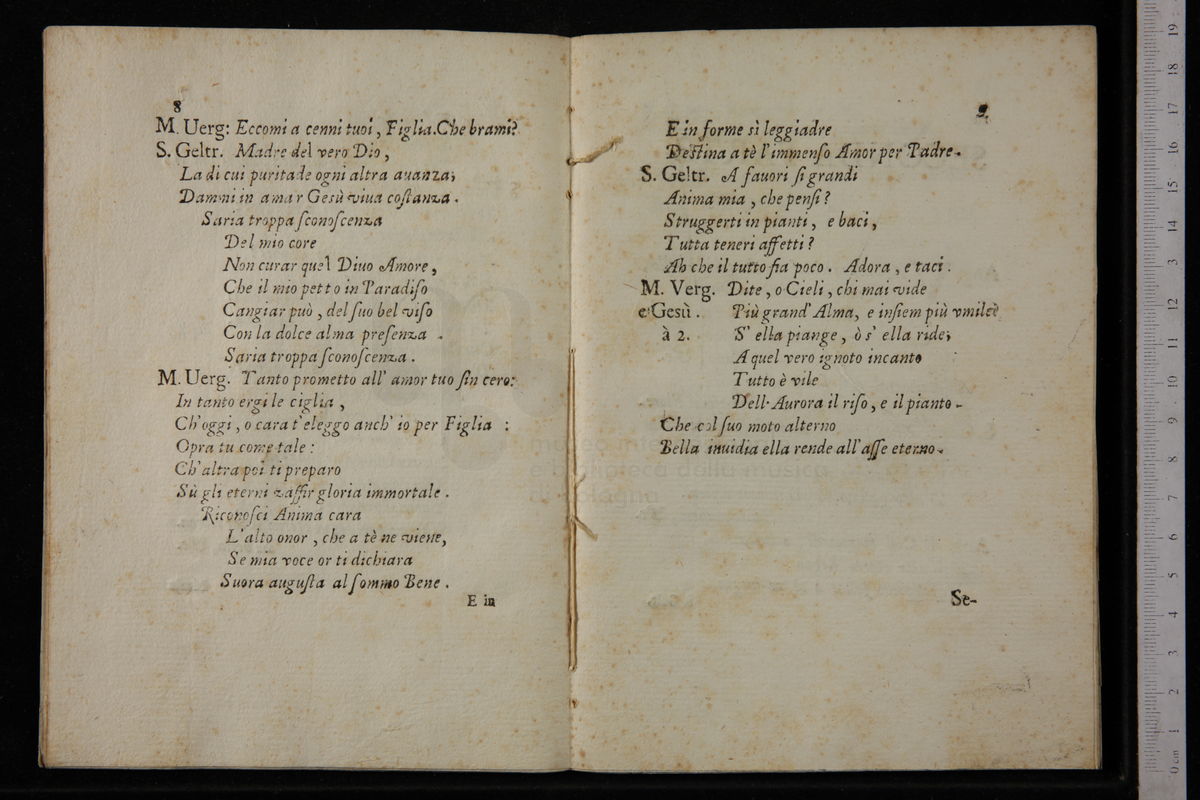 8
M. Uerg: Eccomi a cenni tuoi, Figlia. Che brami?
S. Geltr. Madre del vero Dio,
La di cui puritade ogni altra auanza;
Dammi in amar Gesù viua coſtanza.
Saria troppa ſconoſcenza
Del mio core
Non curar quel Diuo Amore,
Che il mio petto in Paradiſo
Cangiar può, del ſuo bel viſo
Con la dolce alma preſenza.
Saria troppa ſconoſcenza.
M. Uerg. Tanto prometto all' amor tuo ſincero:
In tanto ergi le ciglia,
Ch'oggi, o cara t'eleggo anch' io per Figlia:
Opra tu come tale:
Ch'altra poi ti preparo
Sù gli eterni zaffir gloria immortale.
Riconoſci Anima cara
L'alto onor, che a tè ne viene,
Se mia voce or ti dichiara
Suora auguſta al ſommo Bene.
E in
9
E in forme sì leggiadre
Deſtina a tè l'immenſo Amor per Padre.
S. Geltr. A fauori ſi grandi
Anima mia, che penſi?
Struggerti in pianti, e baci,
Tutta teneri affetti?
Ah che il tutto fia poco. Adora, e taci.
M. Verg. Dite, o Cieli, chi mai vide
e Gesù. Più grand' Alma, e inſiem più vmile?
à 2. S' ella piange, ò s' ella ride;
A quel vero ignoto incanto
Tutto è vile
Dell' Aurora il riſo, e il pianto.
Che col ſuo moto alterno
Bella inuidia ella rende all' aſſe eterno.
Se-
museo internazionale
e biblioteca della musica
di bologna
19
18
17
16
15
14
13
12
11
10
9
8
7
6
5
4
3
2
1
0 cm